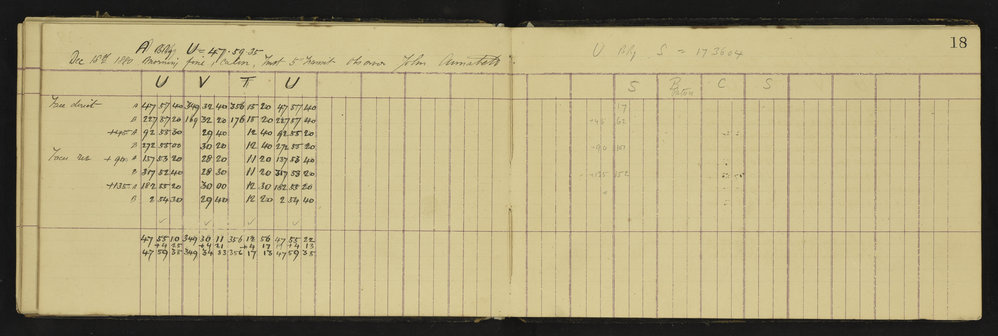 18
A Bldg. U = 47.59.35
Dec 15th 1880 Morning fine, calm, Inst 5" Transit Observer John
U V T U
Face direct A 47 57 40 349 32 40 356 15 20 47 57 40
B 227 57 20 169 32 20 176 15 20 227 57 40
+45 A 92 55 30 29 40 12 40 92 55 20
B 272 55 00 30 20 12 40 272 55 20
Face res +90 A 137 53 20 28 20 11 20 137 53 40
B 317 52 40 28 30 11 20 317 53 20
+135 A 182 55 20 30 00 12 30 182 55 20
B 2 54 30 29 40 12 20 2 54 40
47 55 10 349 30 11 356 12 56 47 55 22
+4 25 +4 21 +4 17 +4 13
47 59 35 349 34 33 356 17 13 47 59 35
U Bldg S = 17 36 04
S C S
17
+45 62
+90